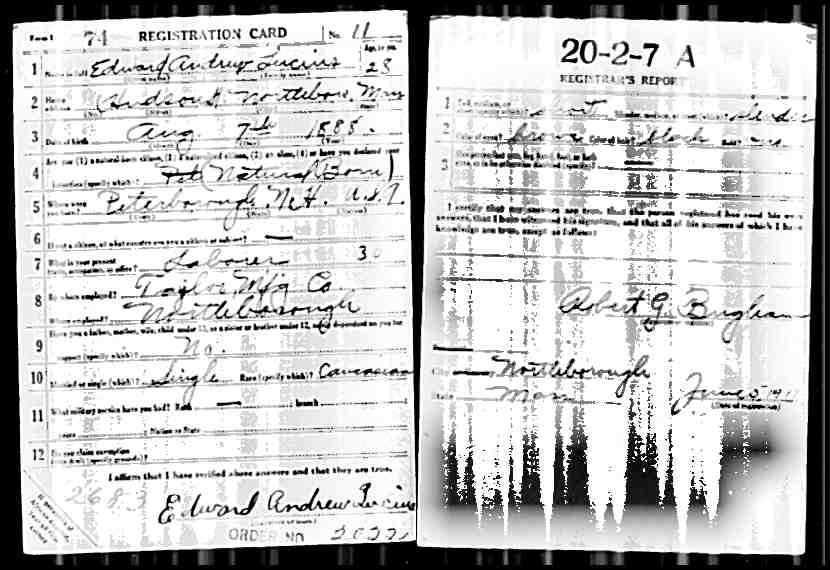 Form 1 74 REGISTRATION CARD No. 11
Age, in yrs.
1 Name in full Edward Andrew Lucius 28
(Family name)
2 Home address Hudson St. Northboro, Mass
3 Date of birth Aug. 7th 1888.
4 Are you (1) a natural-born citizen, (2) a naturalized citizen, (3) an alien, (4) or have you declared your
intention (specify which)? (Natural Born)
5 Where were you born? Peterborough N.H. U.S.A.
6 If not a citizen, of what country are you a citizen or subject? —
7 What is your present trade, occupation, or office? Laborer 30
8 By whom employed? Taylor Mfg Co.
Where employed? Northborough
9 Have you a father, mother, wife, child under 12, or a sister or brother under 12, solely dependent on you for
support (specify which)? No.
10 Married or single (which)? Single Race (specify which)? Caucasian
11 What military service have you had? Rank — branch
years Nation or State
12 Do you claim exemption from draft (specify grounds)?
I affirm that I have verified above answers and that they are true.
2683
Edward Andrew Lucius
ORDER NO
20-2-7 A
REGISTRAR'S REPORT
1 Tall, medium, or short (specify which)? short Slender, medium, or stout (which)? slender
2 Color of eyes? brown Color of hair? black Bald? no
3
I certify that my answers are true, that the person registered has read his own
answers, that I have witnessed his signature, and that all of his answers of which I have
knowledge are true, except as follows:
Robert G. Bigham
City Northborough
State Mass June 5, 1917
(Date of registration)